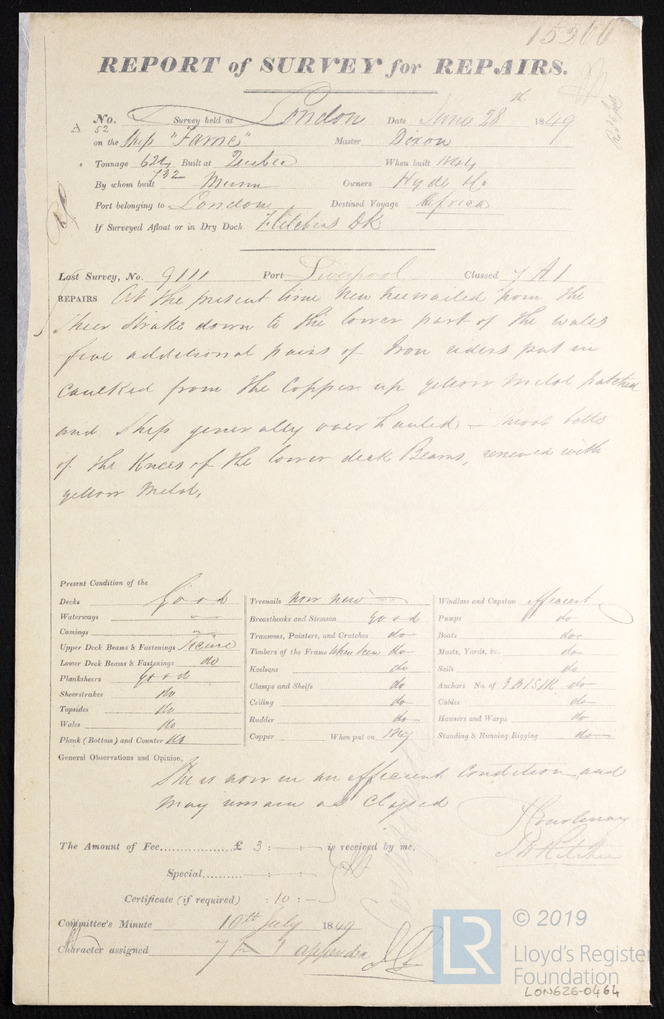 REPORT of SURVEY for REPAIRS.
A
No. 52 Survey held at London Date June 28th 1849
on the Ship "Fame" Master Dixon
Tonnage Built at Quebec When built
By whom built Munn Owners Hyde & Co
Port belonging to London Destined Voyage Africa
If Surveyed Afloat or in Dry Dock Fletchers Dk
Last Survey, No. 9111 Port Liverpool Classed 7 A 1
REPAIRS At the present time New treenailed from the
Sheer strake down to the lower part of the wales
five additional pairs of Iron riders put in
Caulked from the Copper up yellow metal patched
and Ship generally over hauled - bolts
of the Knees of the lower deck Beams, renewed with
yellow metal,
Present Condition of the
Decks good
Waterways
Comings
Upper Deck Beams & Fastenings Secure
Lower Deck Beams & Fastenings do
Planksheers good
Sheerstrakes do
Topsides do
Wales do
Plank (Bottom) and Counter do
Treenails now new
Breasthooks and Stemson good
Transoms, Pointers, and Crutches do
Timbers of the Frame When seen do
Keelsons do
Clamps and Shelfs do
Ceiling do
Rudder do
Copper When put on
Windlass and Capstan efficient
Pumps do
Boats do
Masts, Yards, &c. do
Sails do
Anchors No. of 3 B 1 S 1 K do
Cables do
Hawsers and Warps do
Standing & Running Rigging do
General Observations and Opinion,
She is now in an efficient Condition and
may remain as Classed
J Courtenay
The Amount of Fee £ 3 : - : - is received by me,
Special
Certificate (if required) : 10 : -
Committee's Minute 10th July 1849
Character assigned
© 2019
LR
Lloyd's Register
Foundation
LON626-0464